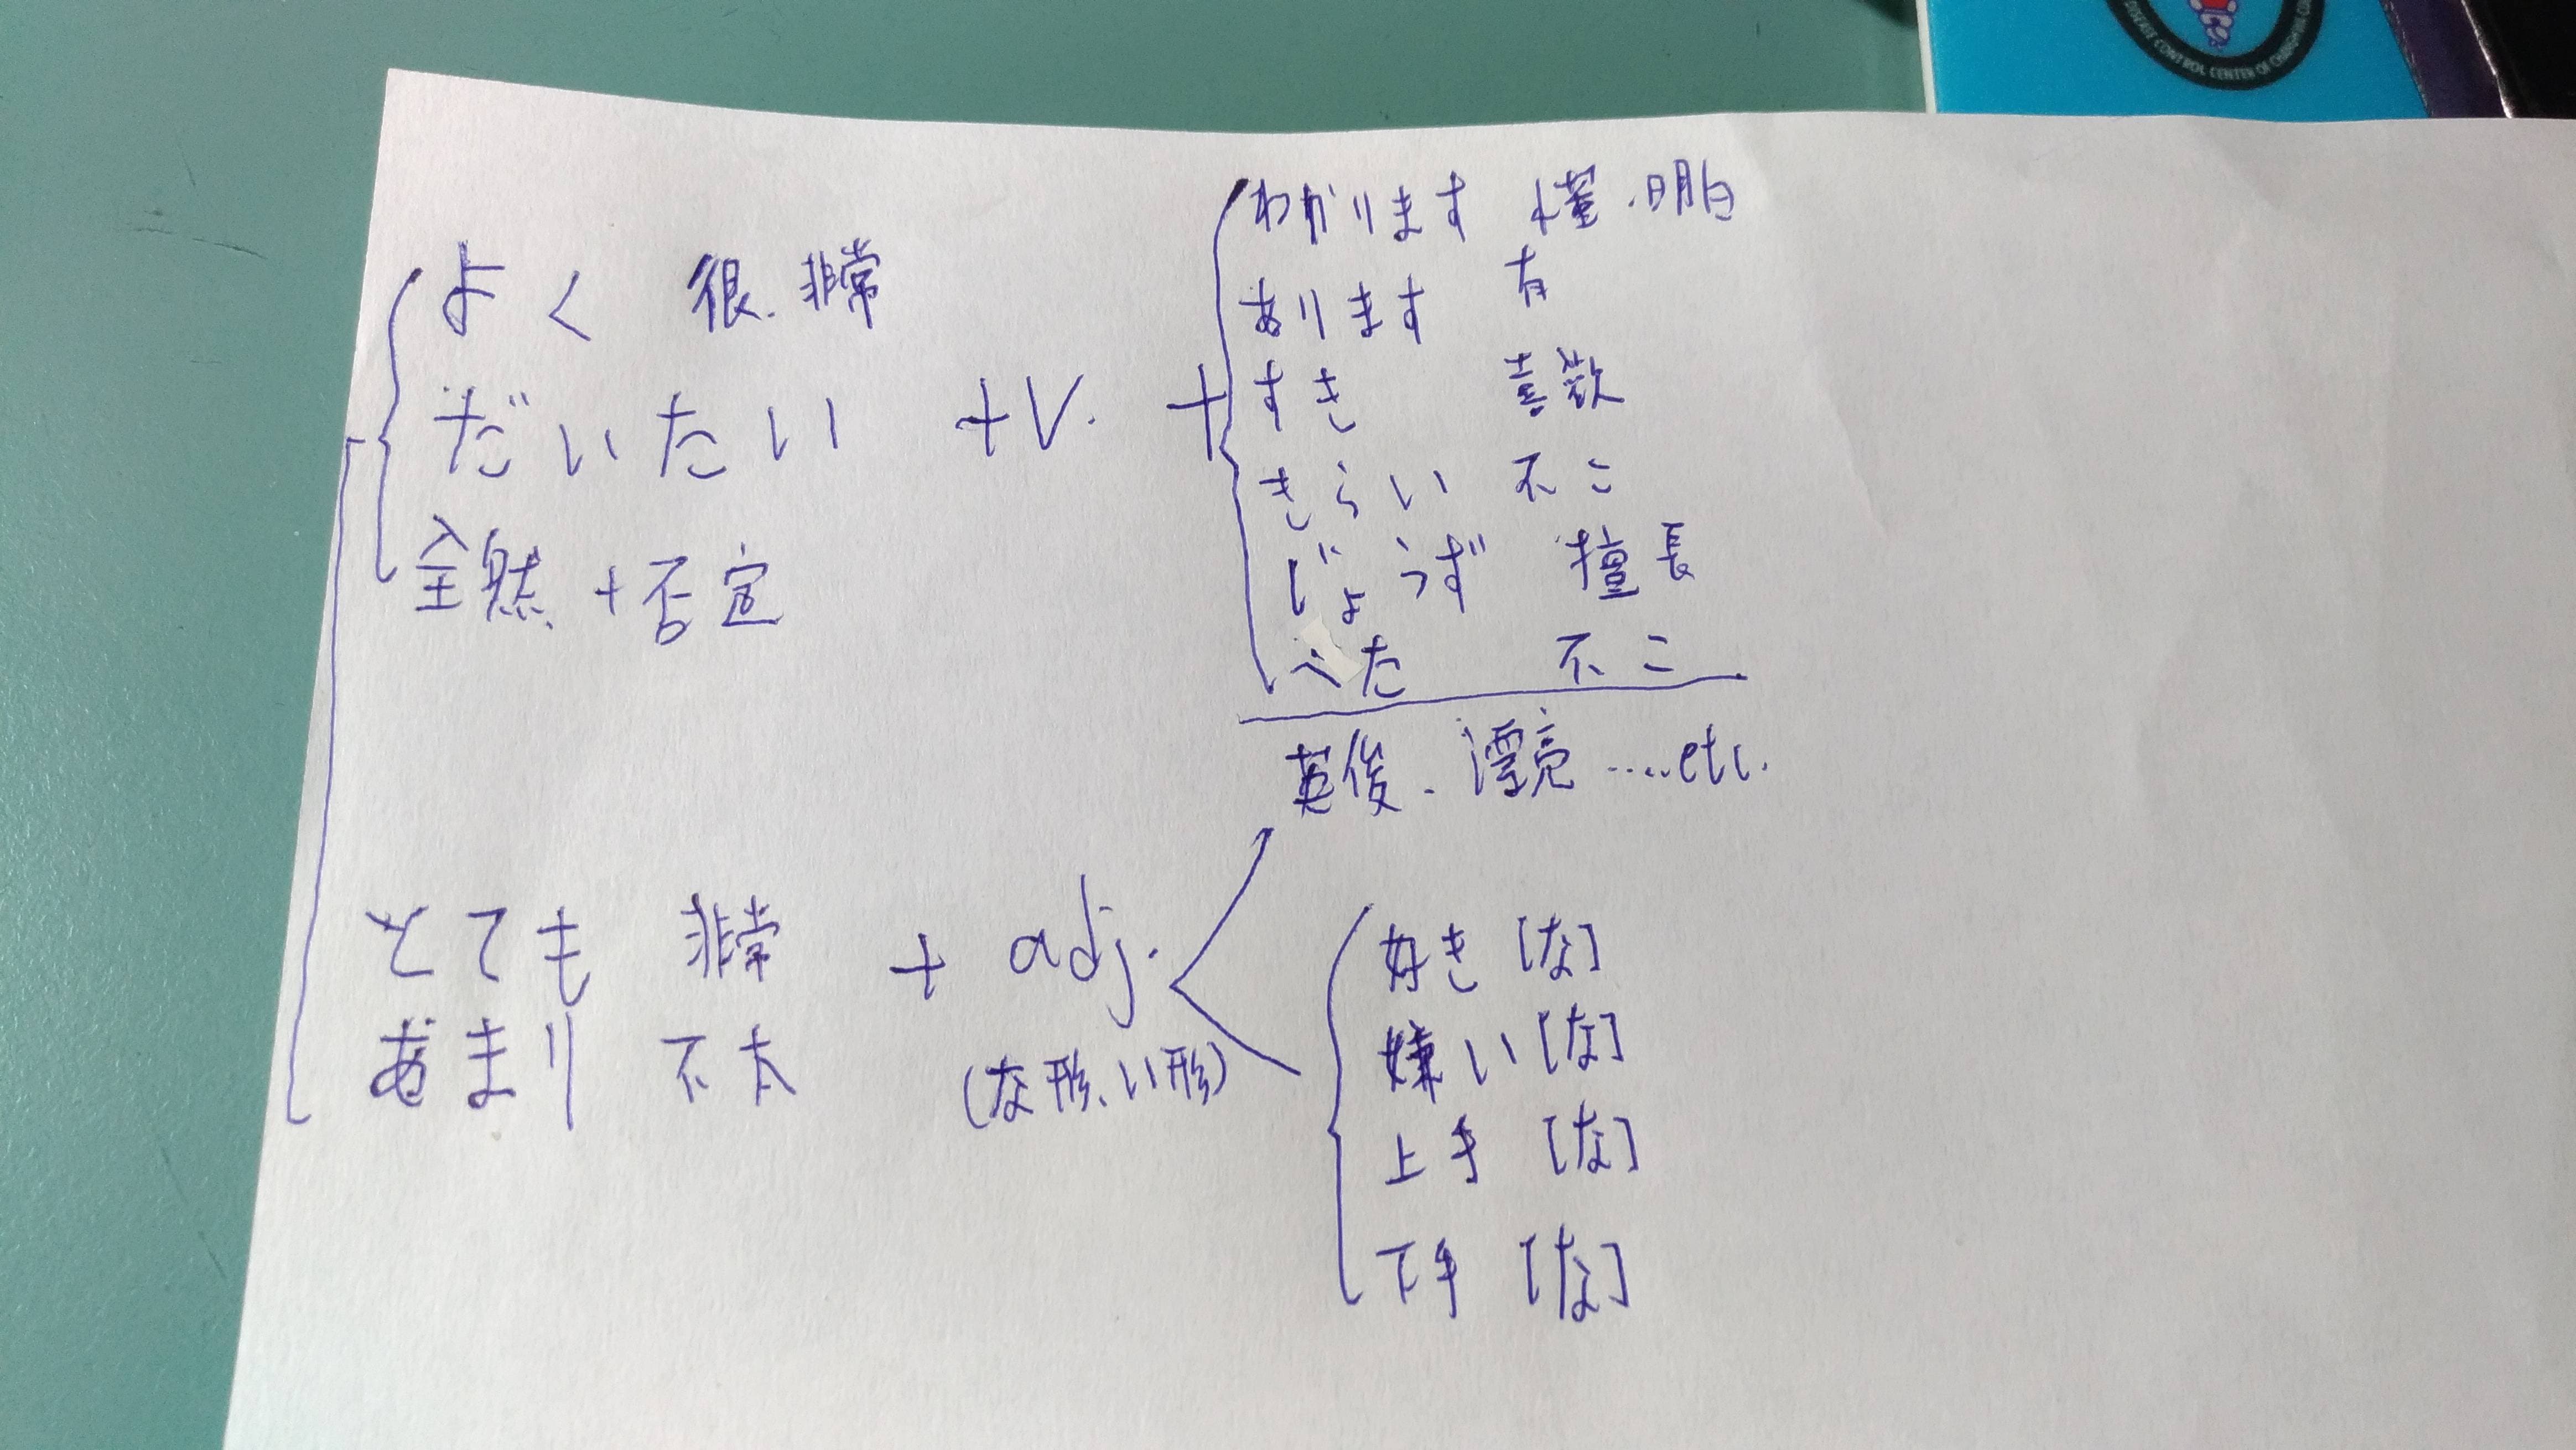 DISEASE CONTROL CENTER OF
わかります 懂.明白
よく 很.非常
あります 有
すき 喜歡
だいたい +V. +
きらい 不こ
じょうず 擅長
全然 +否定
へた 不こ
英俊.漂亮.....etc.
とても 非常 + adj.
好き [な]
あまり 不太
(な形、い形)
嫌い [な]
上手 [な]
下手 [な]